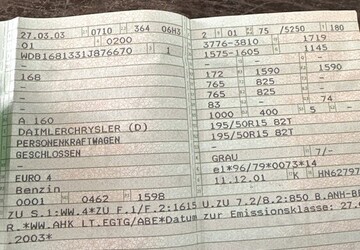 27.03.03 0710 364 06H3
01 0200
WDB1681331J876670 1
-
168
-
-
A 160
DAIMLERCHRYSLER (D)
PERSONENKRAFTWAGEN
GESCHLOSSEN
-
EURO 4
Benzin
0001 0462 1598
2 01 75 /5250 180
3776-3810 1719
1575-1605 1145
- -
172 1590 1590
765 825 -
765 825 -
83 - 74
1000 400 5 -
195/50R15 82T
195/50R15 82T
-
-
GRAU 7/-
e1*96/79*0073*14
11.12.01 K HN6279
ZU S.1:WW.4*ZU F.1/F.2:1615 U.ZU 7.2/8.2:850 B.ANH-BE
R.*WW.AHK LT.EGTG/ABE*Datum zur Emissionsklasse: 27.0
.2003*